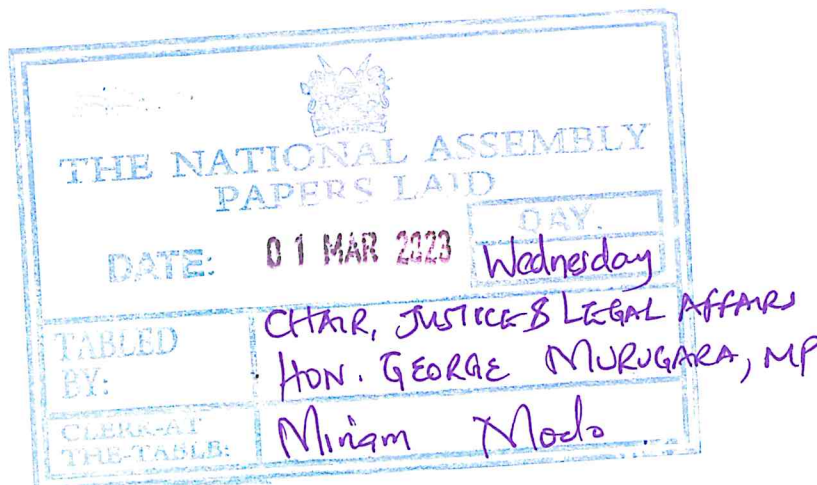 THE NATIONAL ASSEMBLY
PAPERS LAID
DATE: 01 MAR 2023
DAY.
Wednesday
TABLED BY:
CHAIR, JUSTICE & LEGAL AFFAIRS
HON. GEORGE MURUGARA, MP
CLERK-AT THE-TABLE:
Miriam Modo